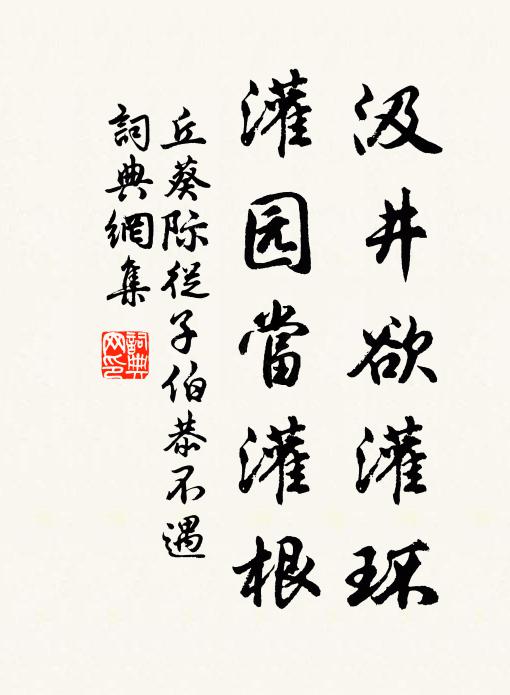 汲井欲灌环
灌园當灌根
丘葵际從子伯恭不遇
詞典網集
詞典网印